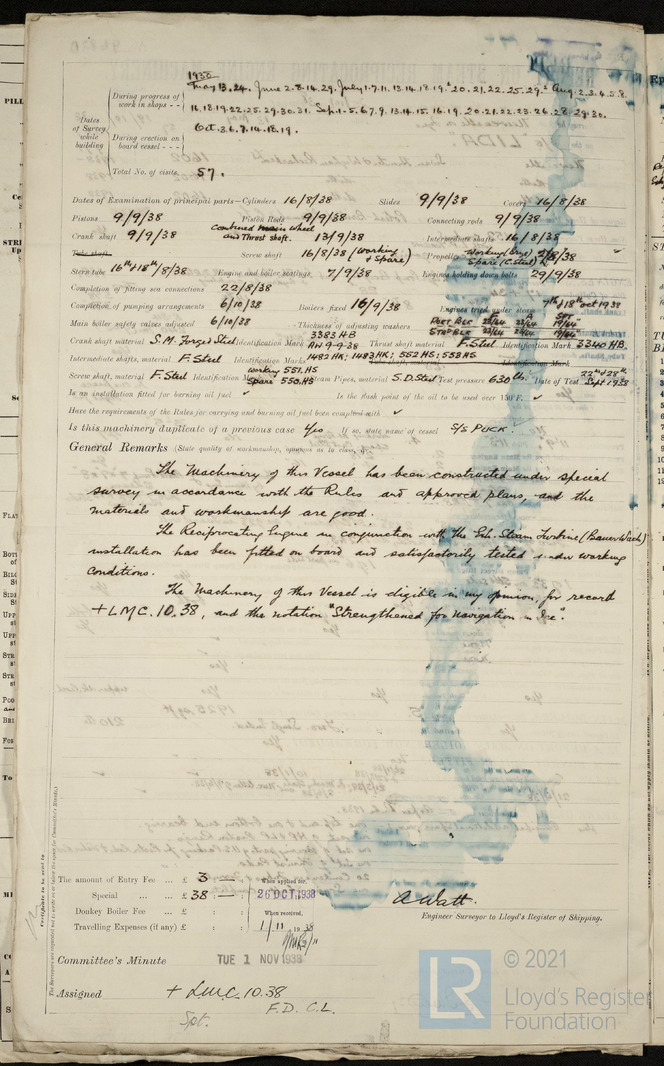 1938
May 13. 24. June 2. 8. 14. 29. July 1. 7. 11. 13. 14. 18. 19. 20. 21. 22. 25. 29. Aug. 2. 3. 4. 5. 8.
During progress of work in shops - -
16. 18. 19. 22. 25. 29. 30. 31. Sep. 1. 5. 6. 7. 9. 13. 14. 15. 16. 19. 20. 21. 22. 23. 26. 28. 29. 30.
Dates of Survey while building
During erection on board vessel - - -
Oct. 3. 6. 7. 14. 18. 19.
Total No. of visits. 57.
Dates of Examination of principal parts—Cylinders 16/8/38 Slides 9/9/38 Covers 16/8/38
Pistons 9/9/38 Piston Rods 9/9/38 Connecting rods 9/9/38
Crank shaft 9/9/38 Combined Wheel and Thrust shaft. 13/9/38 Intermediate shafts 16/8/38
Tube shaft Screw shaft 16/8/38 (Working & Spare) Propeller Working
Stern tube 16th & 18th/8/38 Engine and boiler seatings 7/9/38 Engines holding down bolts 29/9/38
Completion of fitting sea connections 22/8/38
Completion of pumping arrangements 6/10/38 Boilers fixed 16/9/38 Engines tried under steam 7th & 18th Oct 1938
Main boiler safety valves adjusted 6/10/38 Thickness of adjusting washers PORT BLR STARB BLR
Crank shaft material S.M. Forged Steel Identification Mark 3383 HB RW 9-9-38 Thrust shaft material F. Steel Identification Mark 3340 HB.
Intermediate shafts, material F. Steel Identification Marks 1482 HK; 1483 HK; 552 HS; 553 HS Tube shaft, material Identification Mark
Screw shaft, material F. Steel Identification Mark Working 551. HS Spare 550. HS Steam Pipes, material S.D. Steel Test pressure 630 lbs. Date of Test 22nd & 28th Sept 1938
Is an installation fitted for burning oil fuel ✓ Is the flash point of the oil to be used over 150°F. ✓
Have the requirements of the Rules for carrying and burning oil fuel been complied with ✓
Is this machinery duplicate of a previous case Yes If so, state name of vessel S/S PUCK
General Remarks (State quality of workmanship, opinions as to class, &c.
The Machinery of this Vessel has been constructed under special
survey in accordance with the Rules and approved plans, and the
materials and workmanship are good.
The Reciprocating Engine in conjunction with the Exh. Steam Turbine (Bauer Wach)
installation has been fitted on board and satisfactorily tested under working
conditions.
The Machinery of this Vessel is eligible in my opinion, for record
+ LMC. 10. 38, and the notation "Strengthened for navigation in Ice".
The amount of Entry Fee ... £ 3 : — : When applied for,
Special ... ... £ 38 : — : 26 OCT 1938
Donkey Boiler Fee ... £ : : When received,
Travelling Expenses (if any) £ : : 1/11 1938
A Watt.
Engineer Surveyor to Lloyd's Register of Shipping.
Committee's Minute TUE 1 NOV 1938
Assigned + LMC. 10. 38
F.D. C.L.
Spt.
Certificate to be sent to
LR
© 2021
Lloyd's Register
Foundation